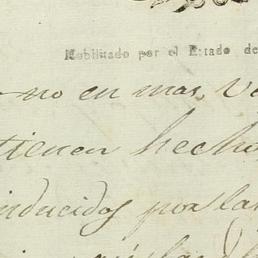 Habilitado por el Estado de
no en mas, v
tienen hecho
inducidos por la